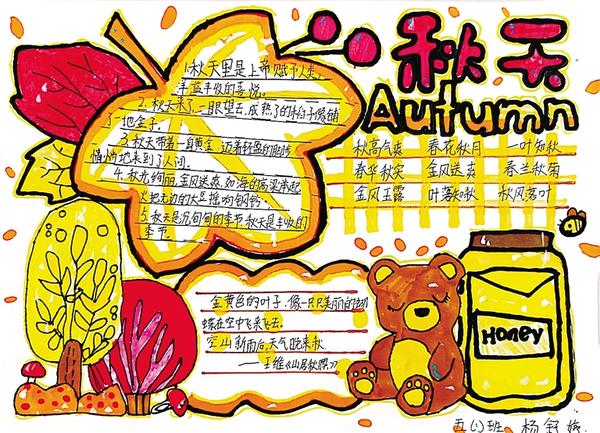 秋天
Autumn
1.秋天里是上帝赋予人类
丰盛丰收的喜悦。
2.秋天来了,一眼望去,成熟了的稻子像铺
了一地金子。
3.秋天带着一身黄金,迈着轻盈的脚步
悄悄地来到了人间。
4.秋光绚丽,金风送爽,如海的高粱举起
火把,无边的大豆摇响铜铃。
5.秋天是沉甸甸的季节,秋天是丰收的
季节。
秋高气爽 春花秋月 一叶知秋
春华秋实 金风送爽 春兰秋菊
金风玉露 叶落知秋 秋风落叶
金黄色的叶子,像一只只美丽的
蝶在空中飞来飞去。
空山新雨后,天气晚来秋
——王维《山居秋暝》
Honey
五(1)班 杨